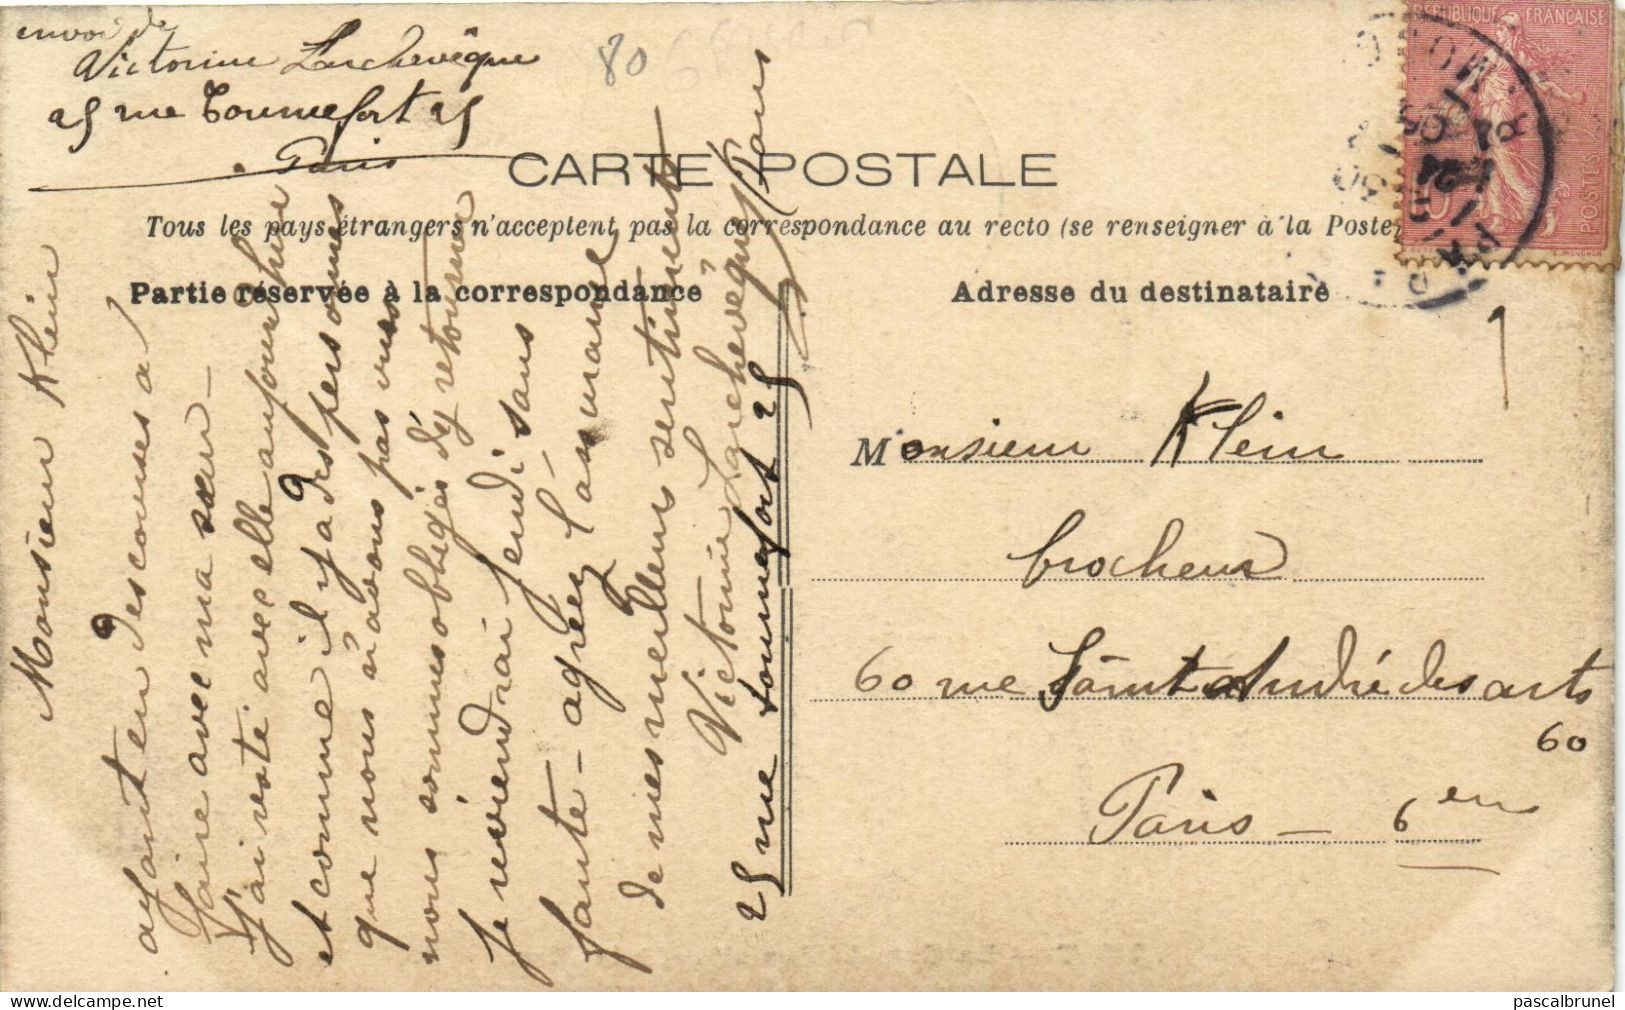 envoi de
Victorine Larchevêque
25 rue Tournefort 25
Paris
80
CARTE POSTALE
Tous les pays étrangers n'acceptent pas la correspondance au recto (se renseigner à la Poste)
Partie réservée à la correspondance
Adresse du destinataire
Monsieur Klein
ayant eu des courses a
faire avec ma sœur -
J'ai resté avec elle aujourd'hui
et comme il y a des personnes
que nous n'avons pas vues
nous sommes obligés d'y retourner
Je reviendrai jeudi sans
faute - agréez l'assurance
de mes meilleurs sentiments
Victorine Larchevêque
25 rue tournefort 25 Paris
Monsieur Klein
brocheur
60 rue Saint André des arts
60
Paris - 6em
1
REPUBLIQUE FRANÇAISE
POSTES
L. MOUCHON
delcampe.net
pascalbrunel